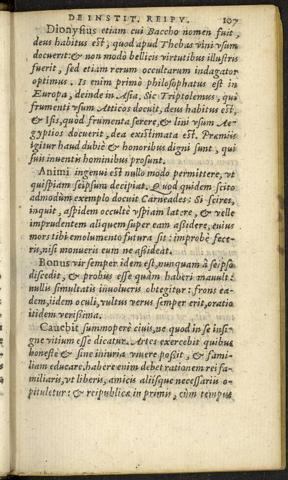 DE INSTIT. REIPV. 107
Dionysius etiam cui Baccho nomen fuit,
deus habitus est, quod apud Thebas vini vsum
docuerit: & non modò bellicis virtutibus illustris
fuerit, sed etiam rerum occultarum indagator
optimus. Is enim primò philosophatus est in
Europa, deinde in Asia. Sic Triptolemus, qui
frumenti vsum Atticos docuit, deus habitus est,
& Isis, quòd frumenta serere, & lini vsum Ae-
gyptios docuerit, dea existimata est. Præmiis
igitur haud dubiè & honoribus digni sunt, qui
suis inuentis hominibus prosunt.
Animi ingenui est nullo modo permittere, vt
quispiam seipsum decipiat. Quod quidem scito
admodum exemplo docuit Carneades: Si scires,
inquit, aspidem occultè vspiam latere, & velle
imprudentem aliquem super eam assidere, cuius
mors tibi emolumento futura sit: improbè fece-
ris, nisi monueris eum ne assideat.
Bonus vir semper idem est, nunquam à seipso
discedit, & probus esse quàm haberi mauult:
nullis simultatis inuolucris obtegitur: frons ea-
dem, iidem oculi, vultus verus semper erit, oratio
itidem verissima.
Cauebit summopere ciuis, ne quod in se insi-
gne vitium esse dicatur. Artes exercebit quibus
honestè & sine iniuria viuere possit, & fami-
liam educare, habere enim debet rationem rei fa-
miliaris, vt liberis, amicis aliisque necessariis o-
pituletur: & reipublicæ in primis, cùm tempus